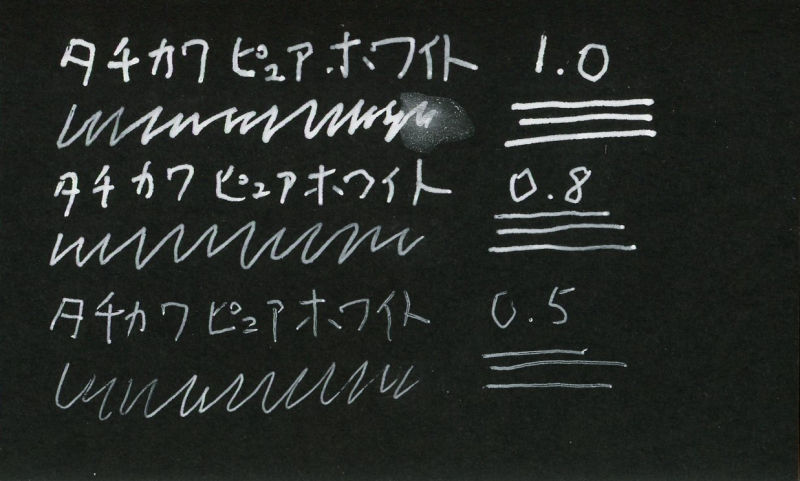 タチカワ ピュア.ホワイト 1.0
タチカワ ピュアホワイト 0.8
タチカワ ピュアホワイト 0.5